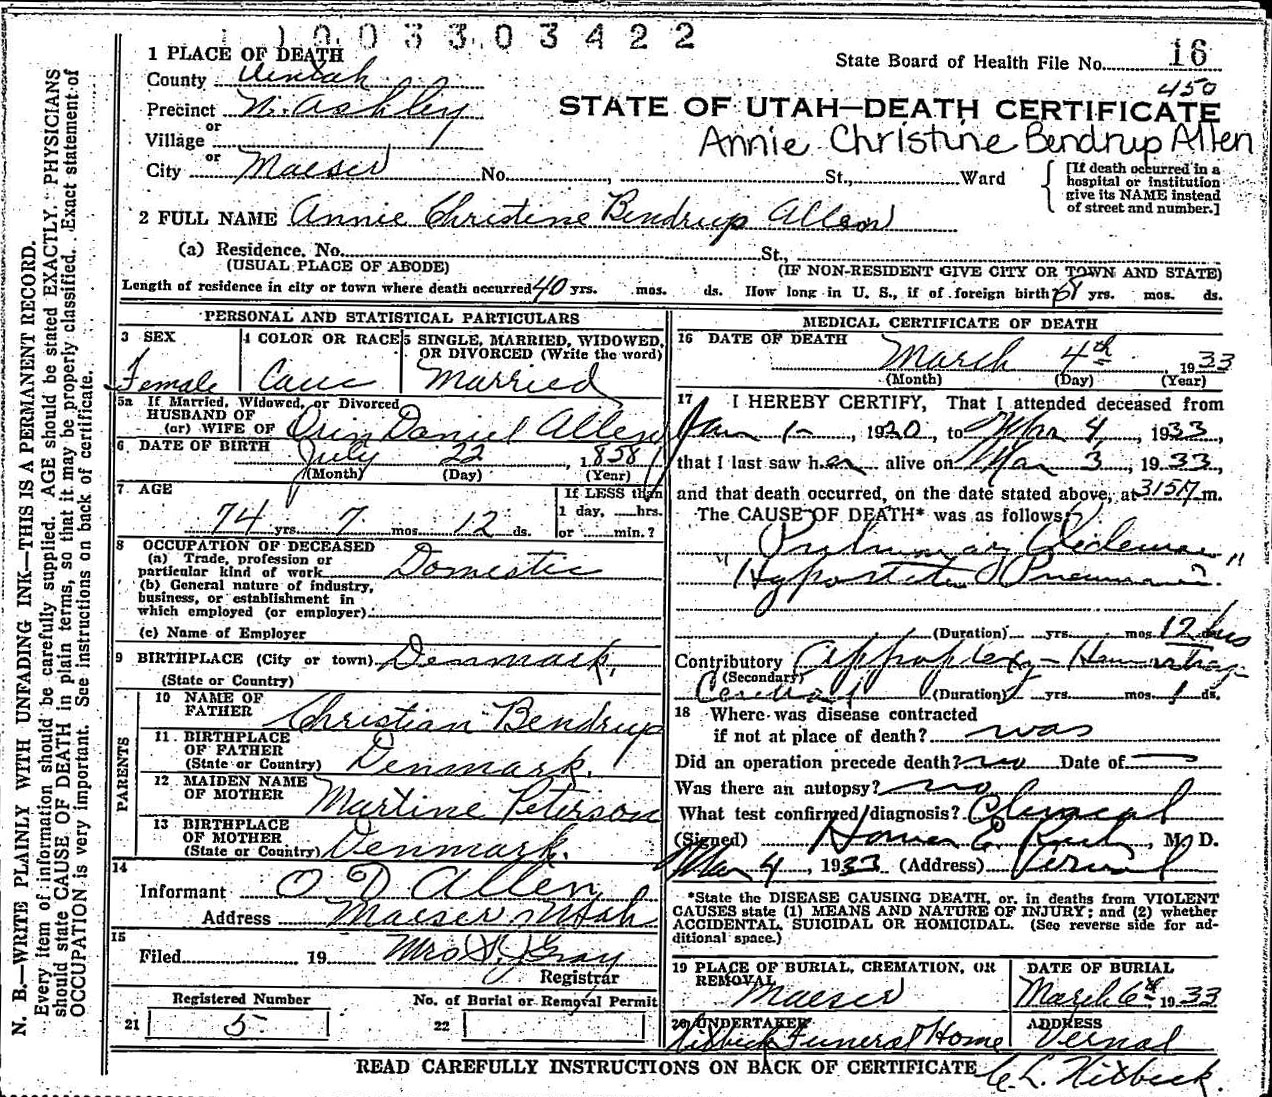 1003303422
1 PLACE OF DEATH
State Board of Health File No. 16
County Uintah
450
Precinct N. Ashley
STATE OF UTAH—DEATH CERTIFICATE
or
Village
Annie Christine Bendrup Allen
or
City Maeser No. , St., Ward
[If death occurred in a
hospital or institution
give its NAME instead
of street and number.]
2 FULL NAME Annie Christine Bendrup Allen
(a) Residence. No. St.,
(USUAL PLACE OF ABODE) (IF NON-RESIDENT GIVE CITY OR TOWN AND STATE)
Length of residence in city or town where death occurred 40 yrs. mos. ds. How long in U. S., if of foreign birth? 68 yrs. mos. ds.
PERSONAL AND STATISTICAL PARTICULARS
3 SEX 4 COLOR OR RACE 5 SINGLE, MARRIED, WIDOWED,
OR DIVORCED (Write the word)
Female Cauc Married
5a If Married, Widowed, or Divorced
HUSBAND OF
(or) WIFE OF Orin Daniel Allen
6 DATE OF BIRTH July 22, 1858
(Month) (Day) (Year)
7 AGE If LESS than
1 day, hrs.
74 yrs. 7 mos. 12 ds. or min.?
8 OCCUPATION OF DECEASED
(a) Trade, profession or
particular kind of work Domestic
(b) General nature of industry,
business, or establishment in
which employed (or employer)
(c) Name of Employer
9 BIRTHPLACE (City or town) Denmark.
(State or Country)
PARENTS
10 NAME OF
FATHER Christian Bendrup
11 BIRTHPLACE
OF FATHER
(State or Country) Denmark.
12 MAIDEN NAME
OF MOTHER Martine Peterson
13 BIRTHPLACE
OF MOTHER
(State or Country) Denmark.
14
Informant O D Allen
Address Maeser Utah
15
Filed 19 Mrs S. J Gray
Registrar
Registered Number No. of Burial or Removal Permit
21 5 22
MEDICAL CERTIFICATE OF DEATH
16 DATE OF DEATH
March 4th, 1933
(Month) (Day) (Year)
17 I HEREBY CERTIFY, That I attended deceased from
Jan 1-, 1920, to Mar 4, 1933,
that I last saw her alive on Mar 3, 1933,
and that death occurred, on the date stated above, at m.
The CAUSE OF DEATH* was as follows:
Pulmonary Oedema
" Hypostatic Pneumonia "
(Duration) yrs. mos. 12 hrs
Contributory Appoplexy - Hemorrhage
(Secondary)
Cerebral (Duration) yrs. mos. 1 ds.
18 Where was disease contracted
if not at place of death? was
Did an operation precede death? no Date of —
Was there an autopsy? no
What test confirmed diagnosis? Clinical
(Signed) Homer E. Rich, M. D.
Mar 4, 1933 (Address) Vernal
*State the DISEASE CAUSING DEATH, or, in deaths from VIOLENT
CAUSES state (1) MEANS AND NATURE OF INJURY; and (2) whether
ACCIDENTAL, SUICIDAL OR HOMICIDAL. (See reverse side for ad-
ditional space.)
19 PLACE OF BURIAL, CREMATION, OR
REMOVAL DATE OF BURIAL
Maeser March 6th, 1933
20 UNDERTAKER ADDRESS
Hixbeck Funeral Home Vernal
READ CAREFULLY INSTRUCTIONS ON BACK OF CERTIFICATE C. L. Hixbeck.
N. B.—WRITE PLAINLY WITH UNFADING INK—THIS IS A PERMANENT RECORD.
Every item of information should be carefully supplied. AGE should be stated EXACTLY. PHYSICIANS
should state CAUSE OF DEATH in plain terms, so that it may be properly classified. Exact statement of
OCCUPATION is very important. See instructions on back of certificate.